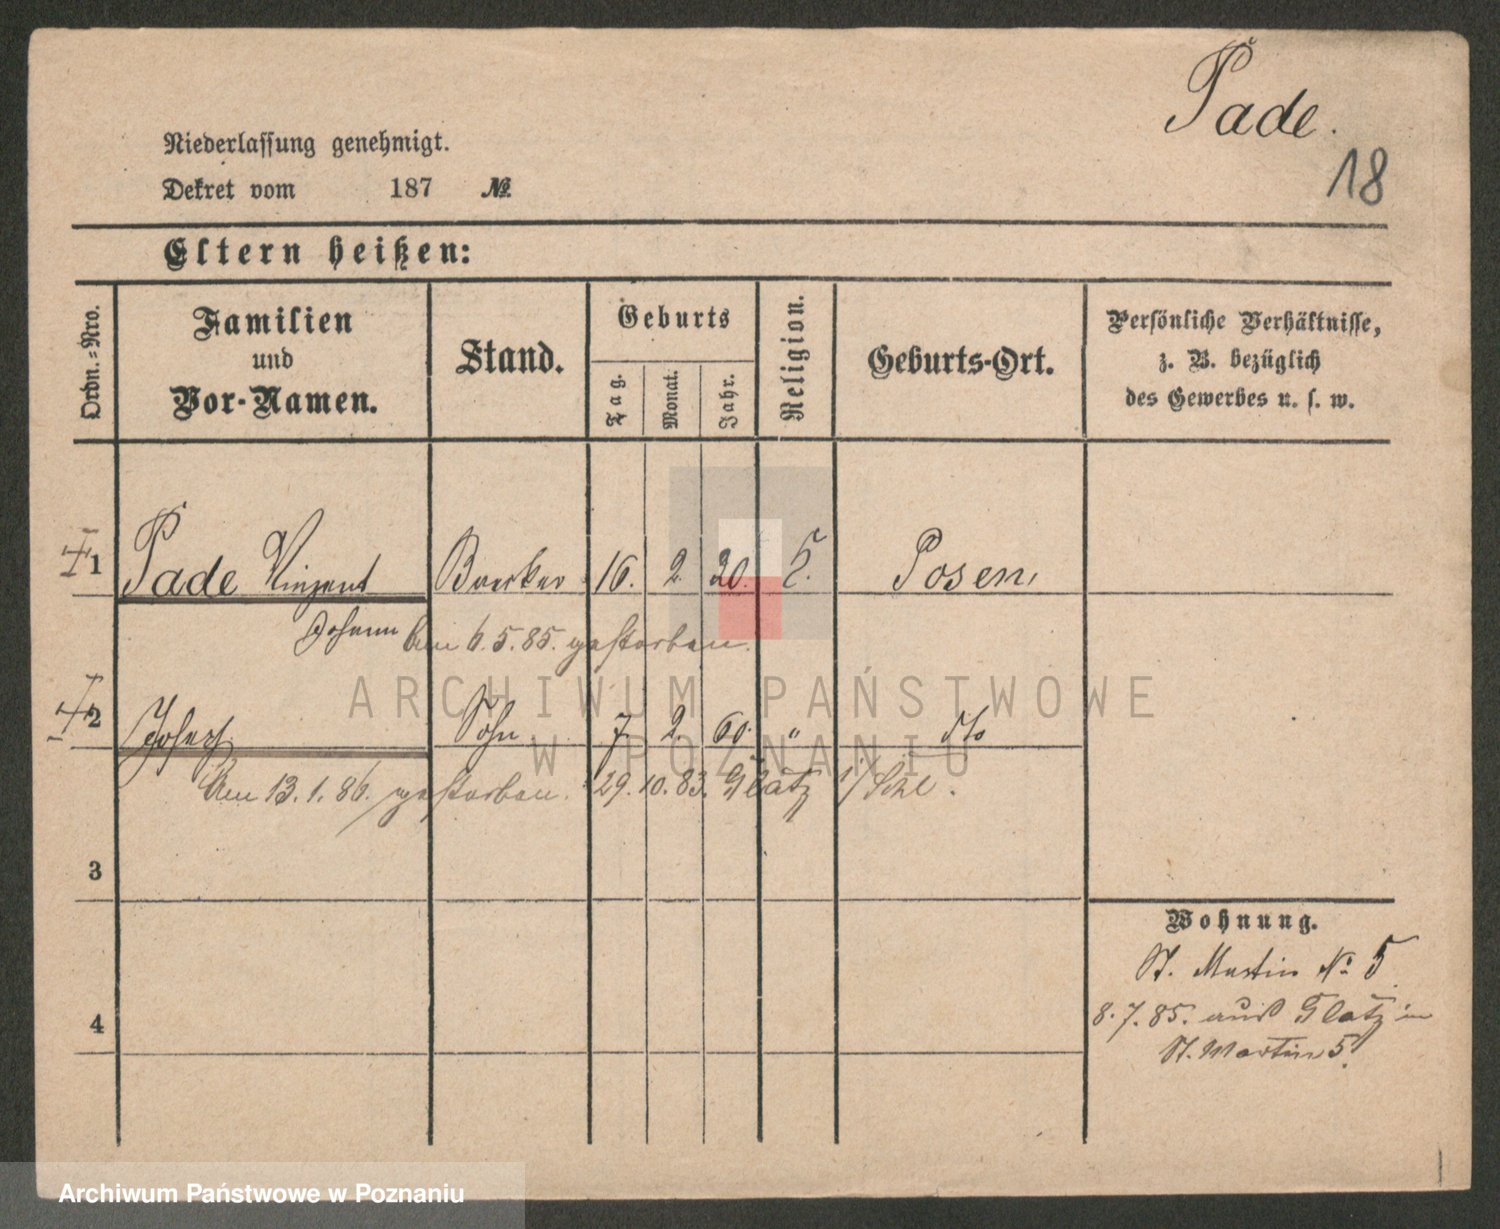 Pade.
18
Niederlassung genehmigt.
Dekret vom 187 №
Eltern heißen:
Ordn.-Nro.
Familien
und
Vor-Namen.
Stand.
Geburts
Tag.
Monat.
Jahr.
Religion.
Geburts-Ort.
Persönliche Verhältnisse,
z. B. bezüglich
des Gewerbes u. s. w.
1 Pade Vinzent 16. 2. 20. Posen,
Johann am 6.5.85. gestorben.
2 Josef Sohn 7. 2. 60. " dto
Am 13.1.86. gestorben. 29.10.83. Glatz i/Schl.
3
4
Wohnung.
St. Martin № 5
8.7.85. aus Glatz in
St. Martin 5.
ARCHIWUM PAŃSTWOWE
W POZNANIU
Archiwum Państwowe w Poznaniu